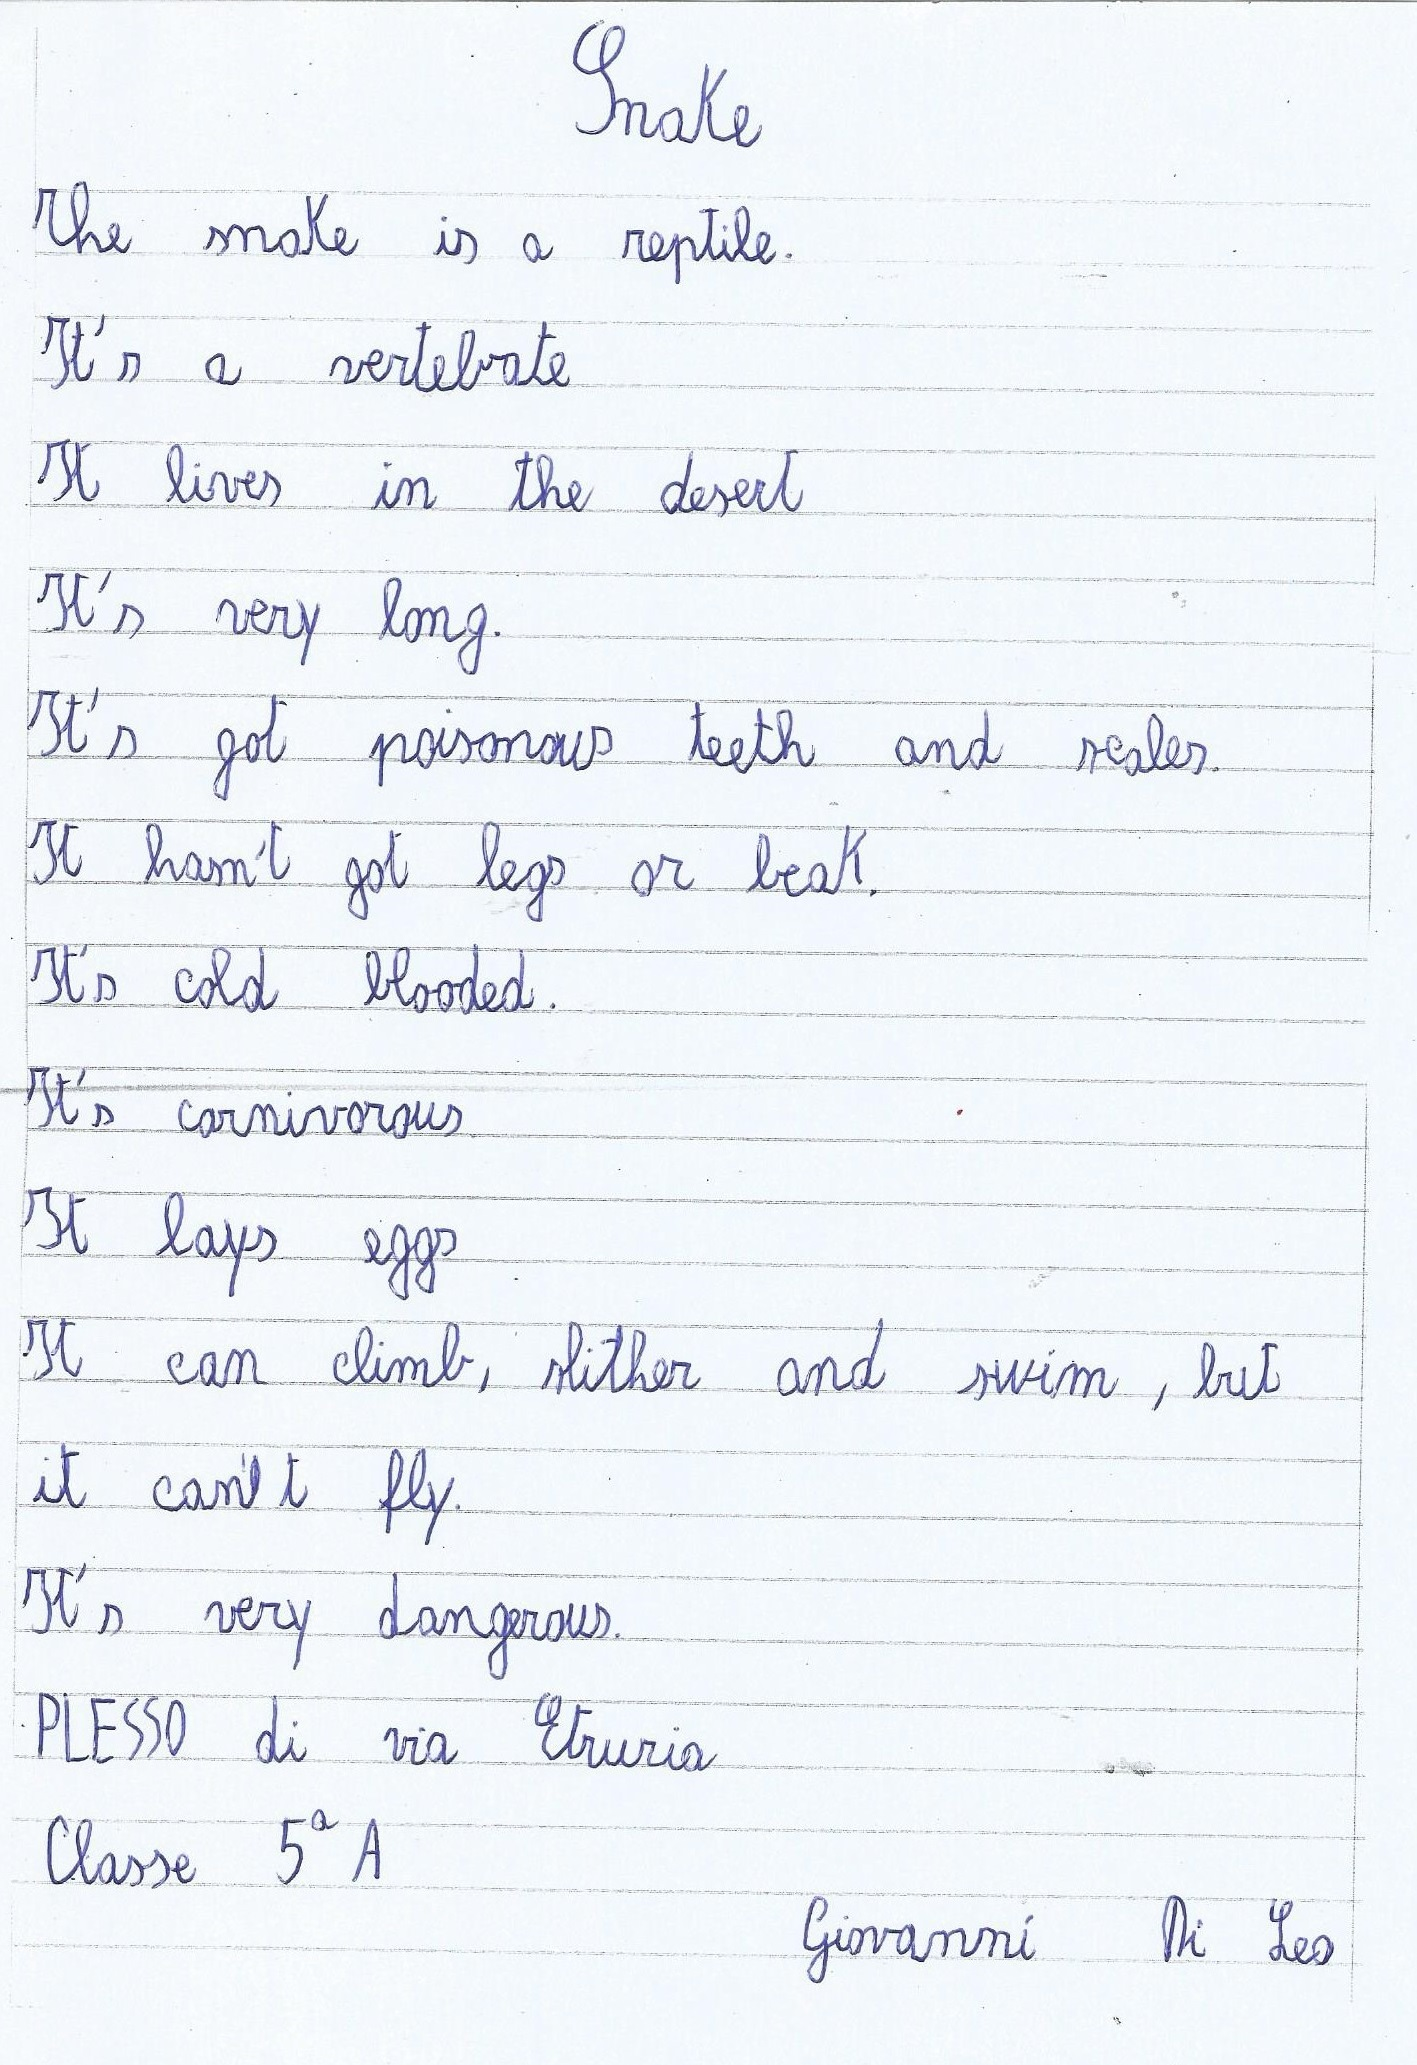 Snake
The snake is a reptile.
It's a vertebrate
It lives in the desert
It's very long.
It's got poisonous teeth and scales.
It hasn't got legs or beak.
It's cold blooded.
It's carnivorous
It lays eggs
It can climb, slither and swim, but
it can't fly.
It's very dangerous.
PLESSO di via Etruria
Classe 5ª A
Giovanni Di Leo